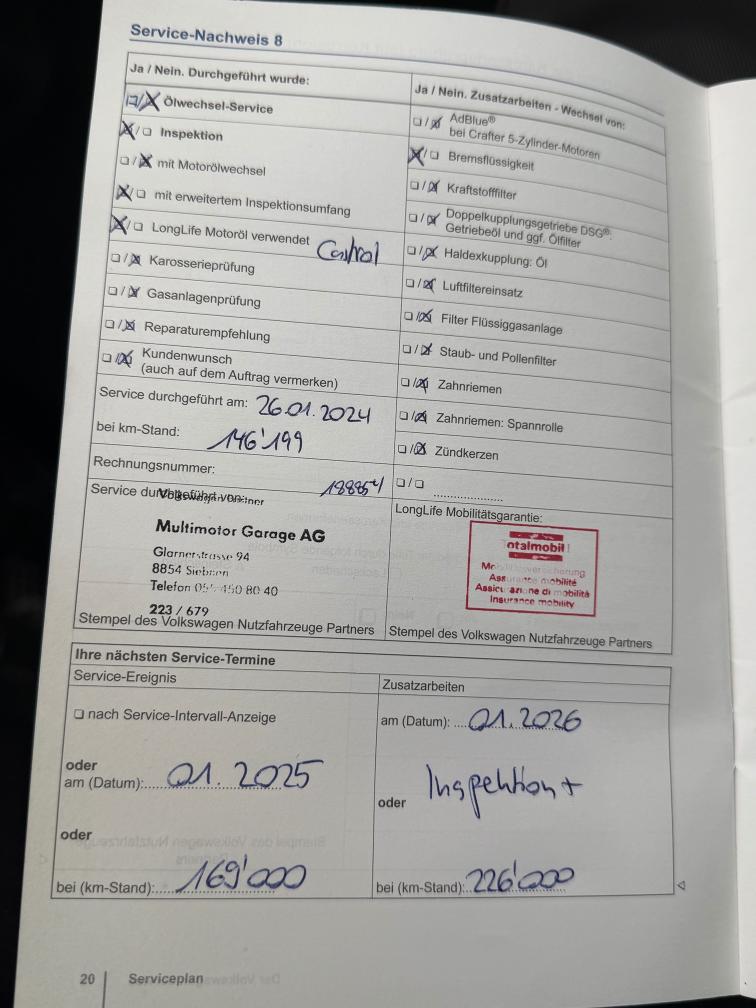 Service-Nachweis 8
Ja / Nein. Durchgeführt wurde:
☐/☒ Ölwechsel-Service
☒/☐ Inspektion
☐/☒ mit Motorölwechsel
☒/☐ mit erweitertem Inspektionsumfang
☒/☐ LongLife Motoröl verwendet Castrol
☐/☒ Karosserieprüfung
☐/☒ Gasanlagenprüfung
☐/☒ Reparaturempfehlung
☐/☒ Kundenwunsch
(auch auf dem Auftrag vermerken)
Service durchgeführt am: 26.01.2024
bei km-Stand: 146'199
Rechnungsnummer:
188854
Service durchgeführt von:
Multimotor Garage AG
Glarnerstrasse 94
8854 Siebnen
Telefon 450 80 40
223 / 679
Stempel des Volkswagen Nutzfahrzeuge Partners
Ja / Nein. Zusatzarbeiten - Wechsel von:
☐/☒ AdBlue®
bei Crafter 5-Zylinder-Motoren
☒/☐ Bremsflüssigkeit
☐/☒ Kraftstofffilter
☐/☒ Doppelkupplungsgetriebe DSG®:
Getriebeöl und ggf. Ölfilter
☐/☒ Haldexkupplung: Öl
☐/☒ Luftfiltereinsatz
☐/☒ Filter Flüssiggasanlage
☐/☒ Staub- und Pollenfilter
☐/☒ Zahnriemen
☐/☒ Zahnriemen: Spannrolle
☐/☒ Zündkerzen
☐/☐ ......................
LongLife Mobilitätsgarantie:
Totalmobil!
Assurance mobilité
Assicurazione di mobilità
Insurance mobility
Stempel des Volkswagen Nutzfahrzeuge Partners
Ihre nächsten Service-Termine
Service-Ereignis
☐ nach Service-Intervall-Anzeige
oder
am (Datum): 01.2025
oder
bei (km-Stand): 169'000
Zusatzarbeiten
am (Datum): 01.2026
Inspektion+
oder
bei (km-Stand): 226'000
20 Serviceplan